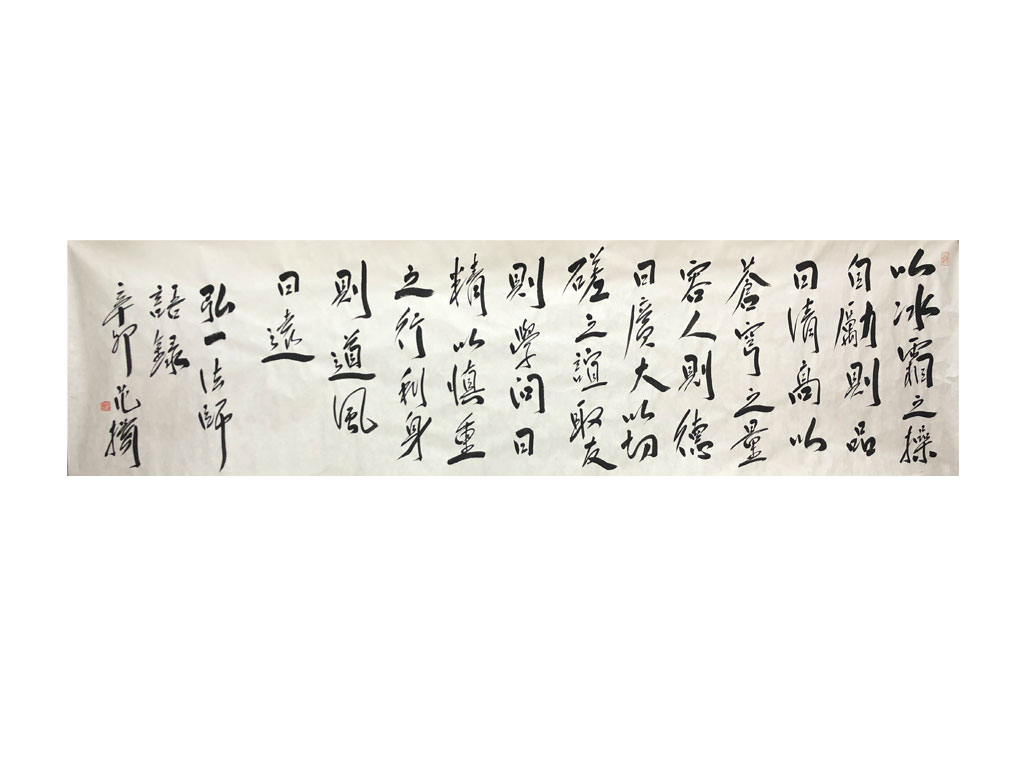 以冰霜之操
自勵則品
日清高以
蒼穹之量
容人則德
日廣大以切
磋之誼取友
則學問日
精以慎重
之行利身
則道風
日遠
弘一法師
語錄
辛卯范